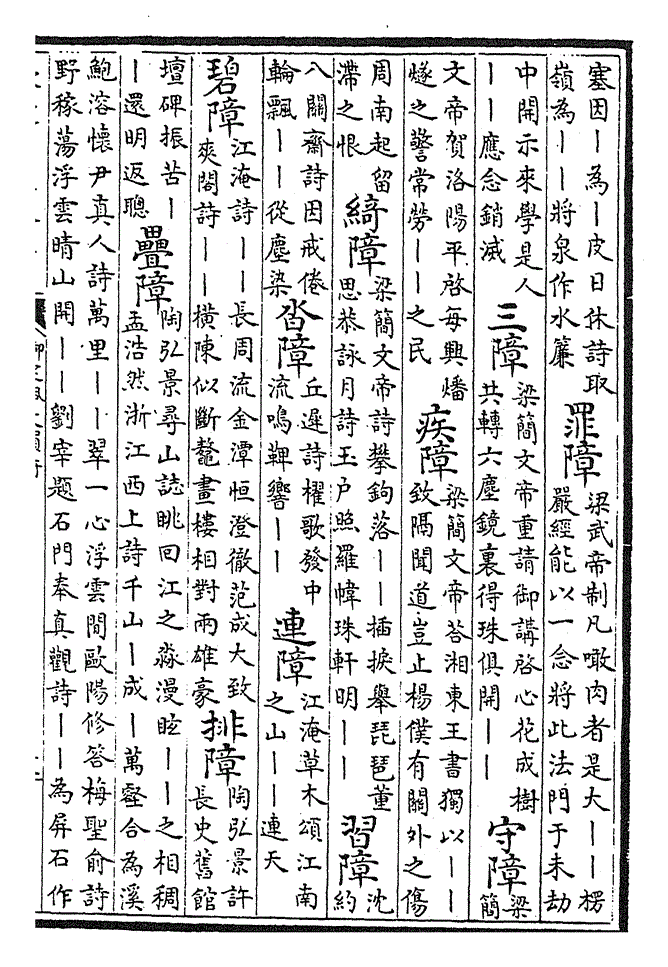 塞因｜為｜皮日休詩取
嶺為｜｜將泉作水簾
罪障
梁武帝制凡噉肉者是大｜｜楞
嚴經能以一念將此法門于未劫
中開示來學是人
｜｜應念銷滅
三障
梁簡文帝重請御講啓心花成樹
共轉六塵鏡裏得珠俱開｜｜
守障
梁
簡
文帝賀洛陽平啓每興燔
燧之警常勞｜｜之民
疾障
梁簡文帝答湘東王書獨以｜｜
致隔聞道豈止楊僕有關外之傷
周南起留
滯之恨
綺障
梁簡文帝詩攀鉤落｜｜插捩舉琵琶董
思恭詠月詩玉户照羅幃珠軒明｜｜
習障
沈
約
八關齋詩因戒倦
輪飄｜｜從塵染
沓障
丘遲詩櫂歌發中
流鳴鞞響｜｜
連障
江淹草木頌江南
之山｜｜連天
碧障
江淹詩｜｜長周流金潭恒澄徹范成大致
爽閣詩｜｜橫陳似斷鼇畫樓相對兩雄豪
排障
陶弘景許
長史舊館
壇碑振苦｜
｜還明返聰
疊障
陶弘景尋山誌眺回江之淼漫眩｜｜之相稠
孟浩然浙江西上詩千山｜成｜萬壑合為溪
鮑溶懷尹真人詩萬里｜｜翠一心浮雲間歐陽修答梅聖俞詩
野稼蕩浮雲晴山開｜｜劉宰題石門奉真觀詩｜｜為屏石作